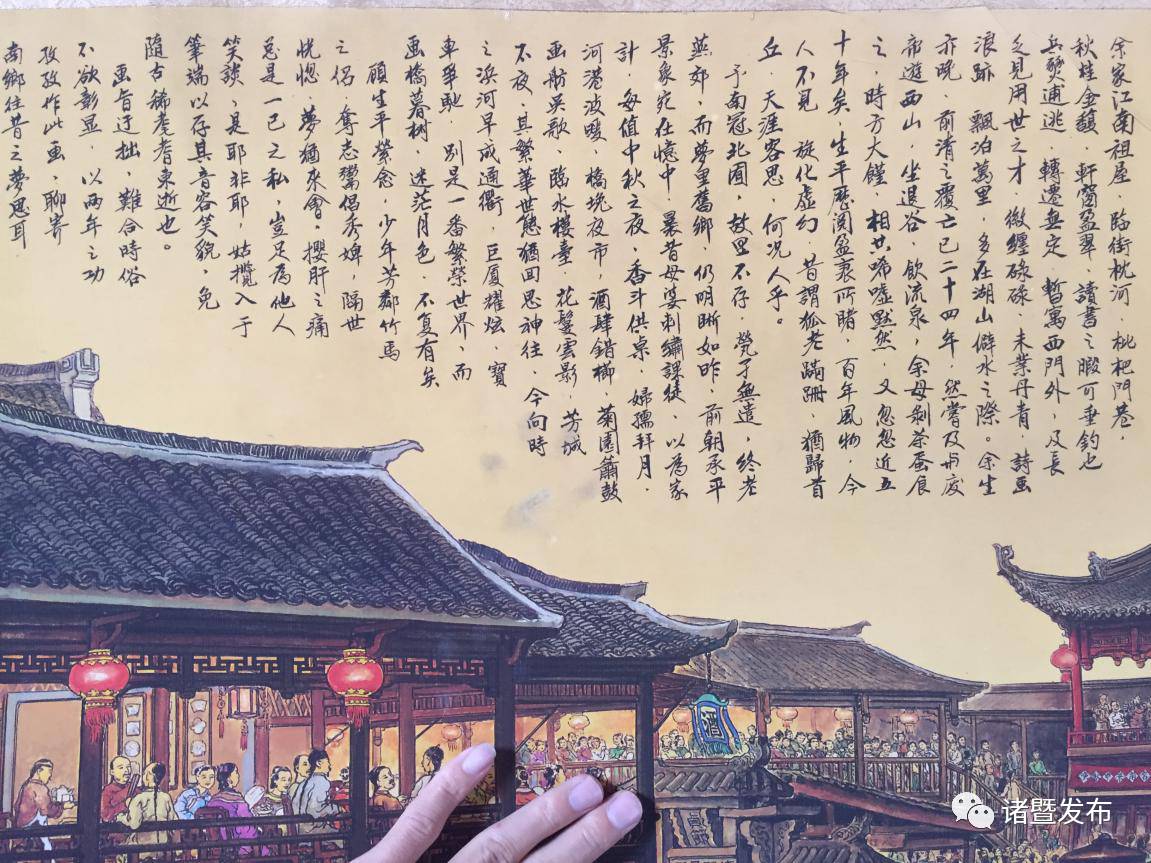 余家江南祖屋，臨街枕河，枇杷門巷，
秋桂金馥，軒窗盈翠，讀書之暇可垂釣也
兵燹逋逃，轉遷無定，暫寓西門外，及長
乏見用世之才，微纏碌碌，未業丹青，詩画
浪跡，飄泊萬里，多在湖山僻水之際。余生
亦晚，前清之覆亡已二十四年，然嘗及
帝遊西山，坐退谷，飲流泉，余母剝茶蛋食
之，時方大饉，相共唏噓默然，又忽忽近五
十年矣，生平歷閱盈衷所睹，百年風物，今
人不見，旋化虛幻，昔謂狐老蹣跚，猶歸首
丘，天涯客思，何況人乎。
予南冠北囿，故里不存，煢孑無造，終老
燕郊，而夢里舊鄉，仍明晰如昨，前朝承平
景象宛在憶中，曩昔母婆刺繡課徒，以為家
計，每值中秋之夜，香斗供桌，婦孺拜月，
河港波暖，橋堍夜市，酒肆錯櫛，菊園簫鼓
画舫吳歌，臨水樓臺，花鬘雲影，芳城
不夜，其繁華世態猶回思神往，今向時
之浜河早成通衢，巨厦耀炫，寶
車爭馳，別是一番繁榮世界，而
画橋暮树，迷茫月色，不复有矣
顧生平縈念，少年芳鄰竹馬
之侶，奪志鸞倡秀婢，隔世
恍惚，夢猶來會，攖肝之痛
忽是一己之私，豈足為他人
笑談，是耶非耶，姑攬入于
筆端以存其音容笑貌，免
隨古稀耄耆東逝也。
画旨迂拙，難合時俗
不欲彰显，以两年之功
孜孜作此画，聊寄
南鄉往昔之夢思耳
酒
诸暨发布